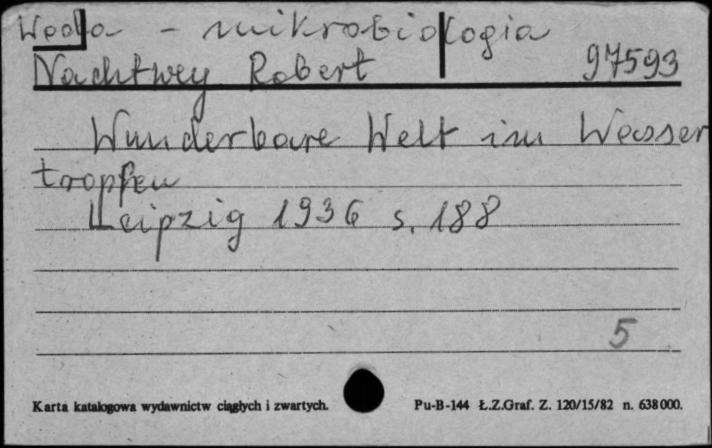 Woda - mikrobiologia
Nachtwey Robert 97593
Wunderbare Welt im Wasser
tropfen
Leipzig 1936 s. 188
5
Karta katalogowa wydawnictw ciągłych i zwartych. Pu-B-144 Ł.Z.Graf. Z. 120/15/82 n. 638000.